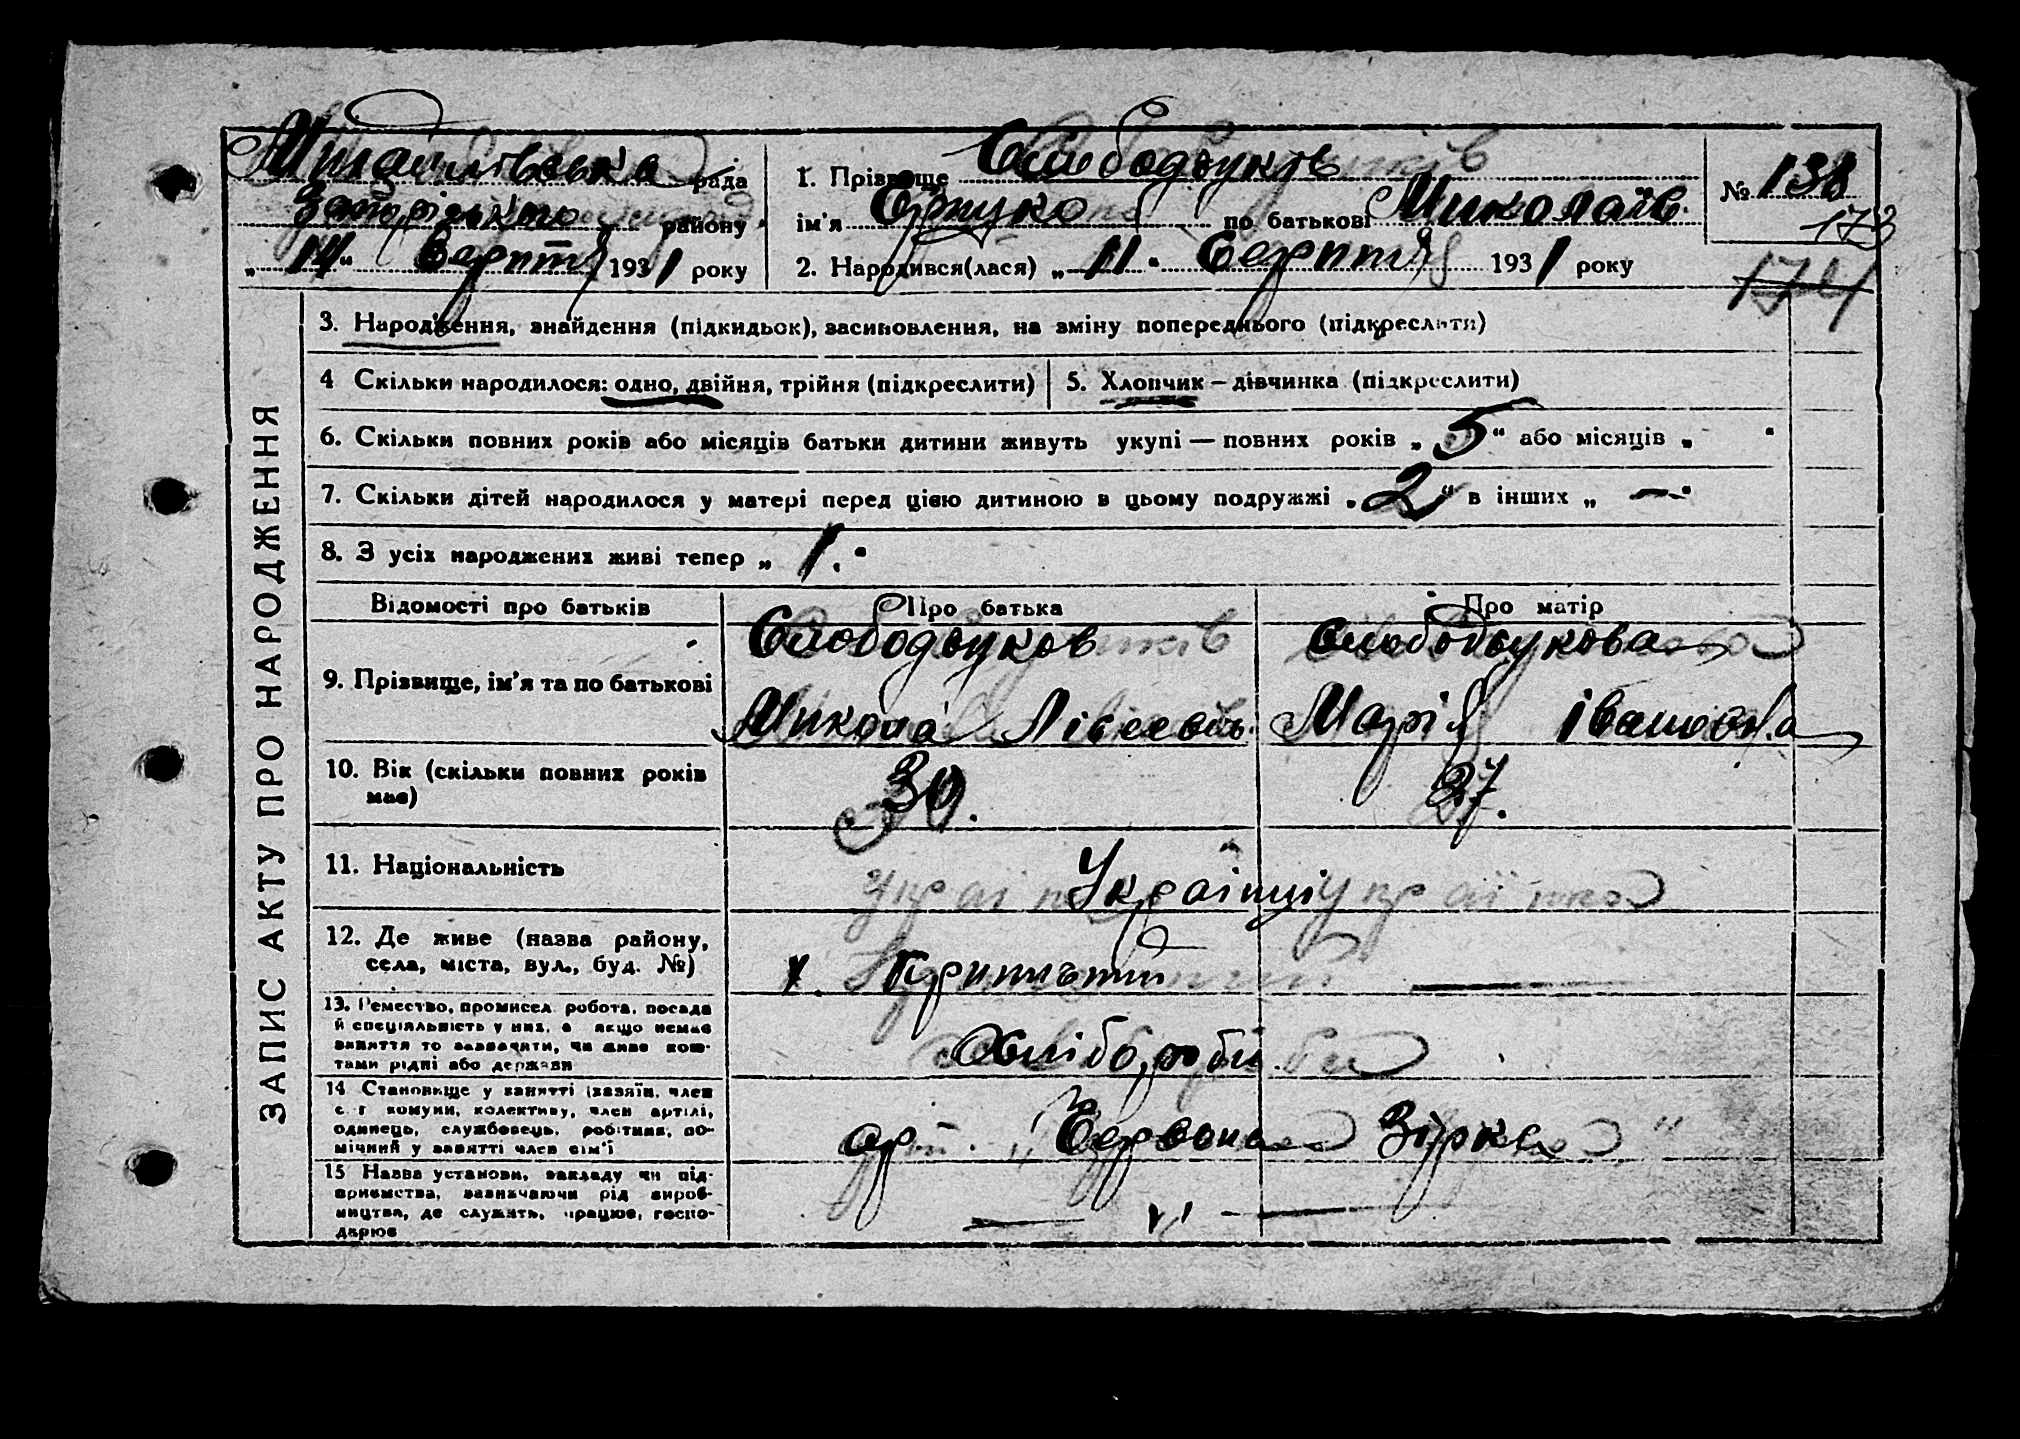 Михайлівська рада
Запорізького району
„ 14 “ Серпня 1931 року
1. Прізвище Слободчуків
ім'я по батькові Миколаїв.
2. Народився(лася) „ 11 “ Серпня 1931 року
№ 138
173
174
ЗАПИС АКТУ ПРО НАРОДЖЕННЯ
3. Народження, знайдення (підкидьок), засиновлення, на зміну попереднього (підкреслити)
4 Скільки народилося: одно, двійня, трійня (підкреслити)
5. Хлопчик – дівчинка (підкреслити)
6. Скільки повних років або місяців батьки дитини живуть укупі — повних років „ 5 “ або місяців „ “
7. Скільки дітей народилося у матері перед цією дитиною в цьому подружжі „ 2 “ в інших „ — “
8. З усіх народжених живі тепер „ 1. “
Відомості про батьків
Про батька
Про матір
9. Прізвище, ім'я та по батькові
Слободчуков
Микола
Слободчукова
Марія Івановна
10. Вік (скільки повних років має)
30.
27.
11. Національність
Українці
12. Де живе (назва району, села, міста, вул., буд. №)
х.
13. Ремество, промисел, робота, посада й спеціяльність у них, а якщо немає заняття то зазначити, чи живе коштами рідні або держави
Хлібороби
14 Становище у занятті (хазяїн, член с.-г комуни, колективу, член артілі, одинець, службовець, робітник, помічний у занятті член сім'ї
ар. „Червона Зірка“
15 Назва установи, закладу чи підприємства, зазначаючи рід виробництва, де служить, працює, господарює
— „ —